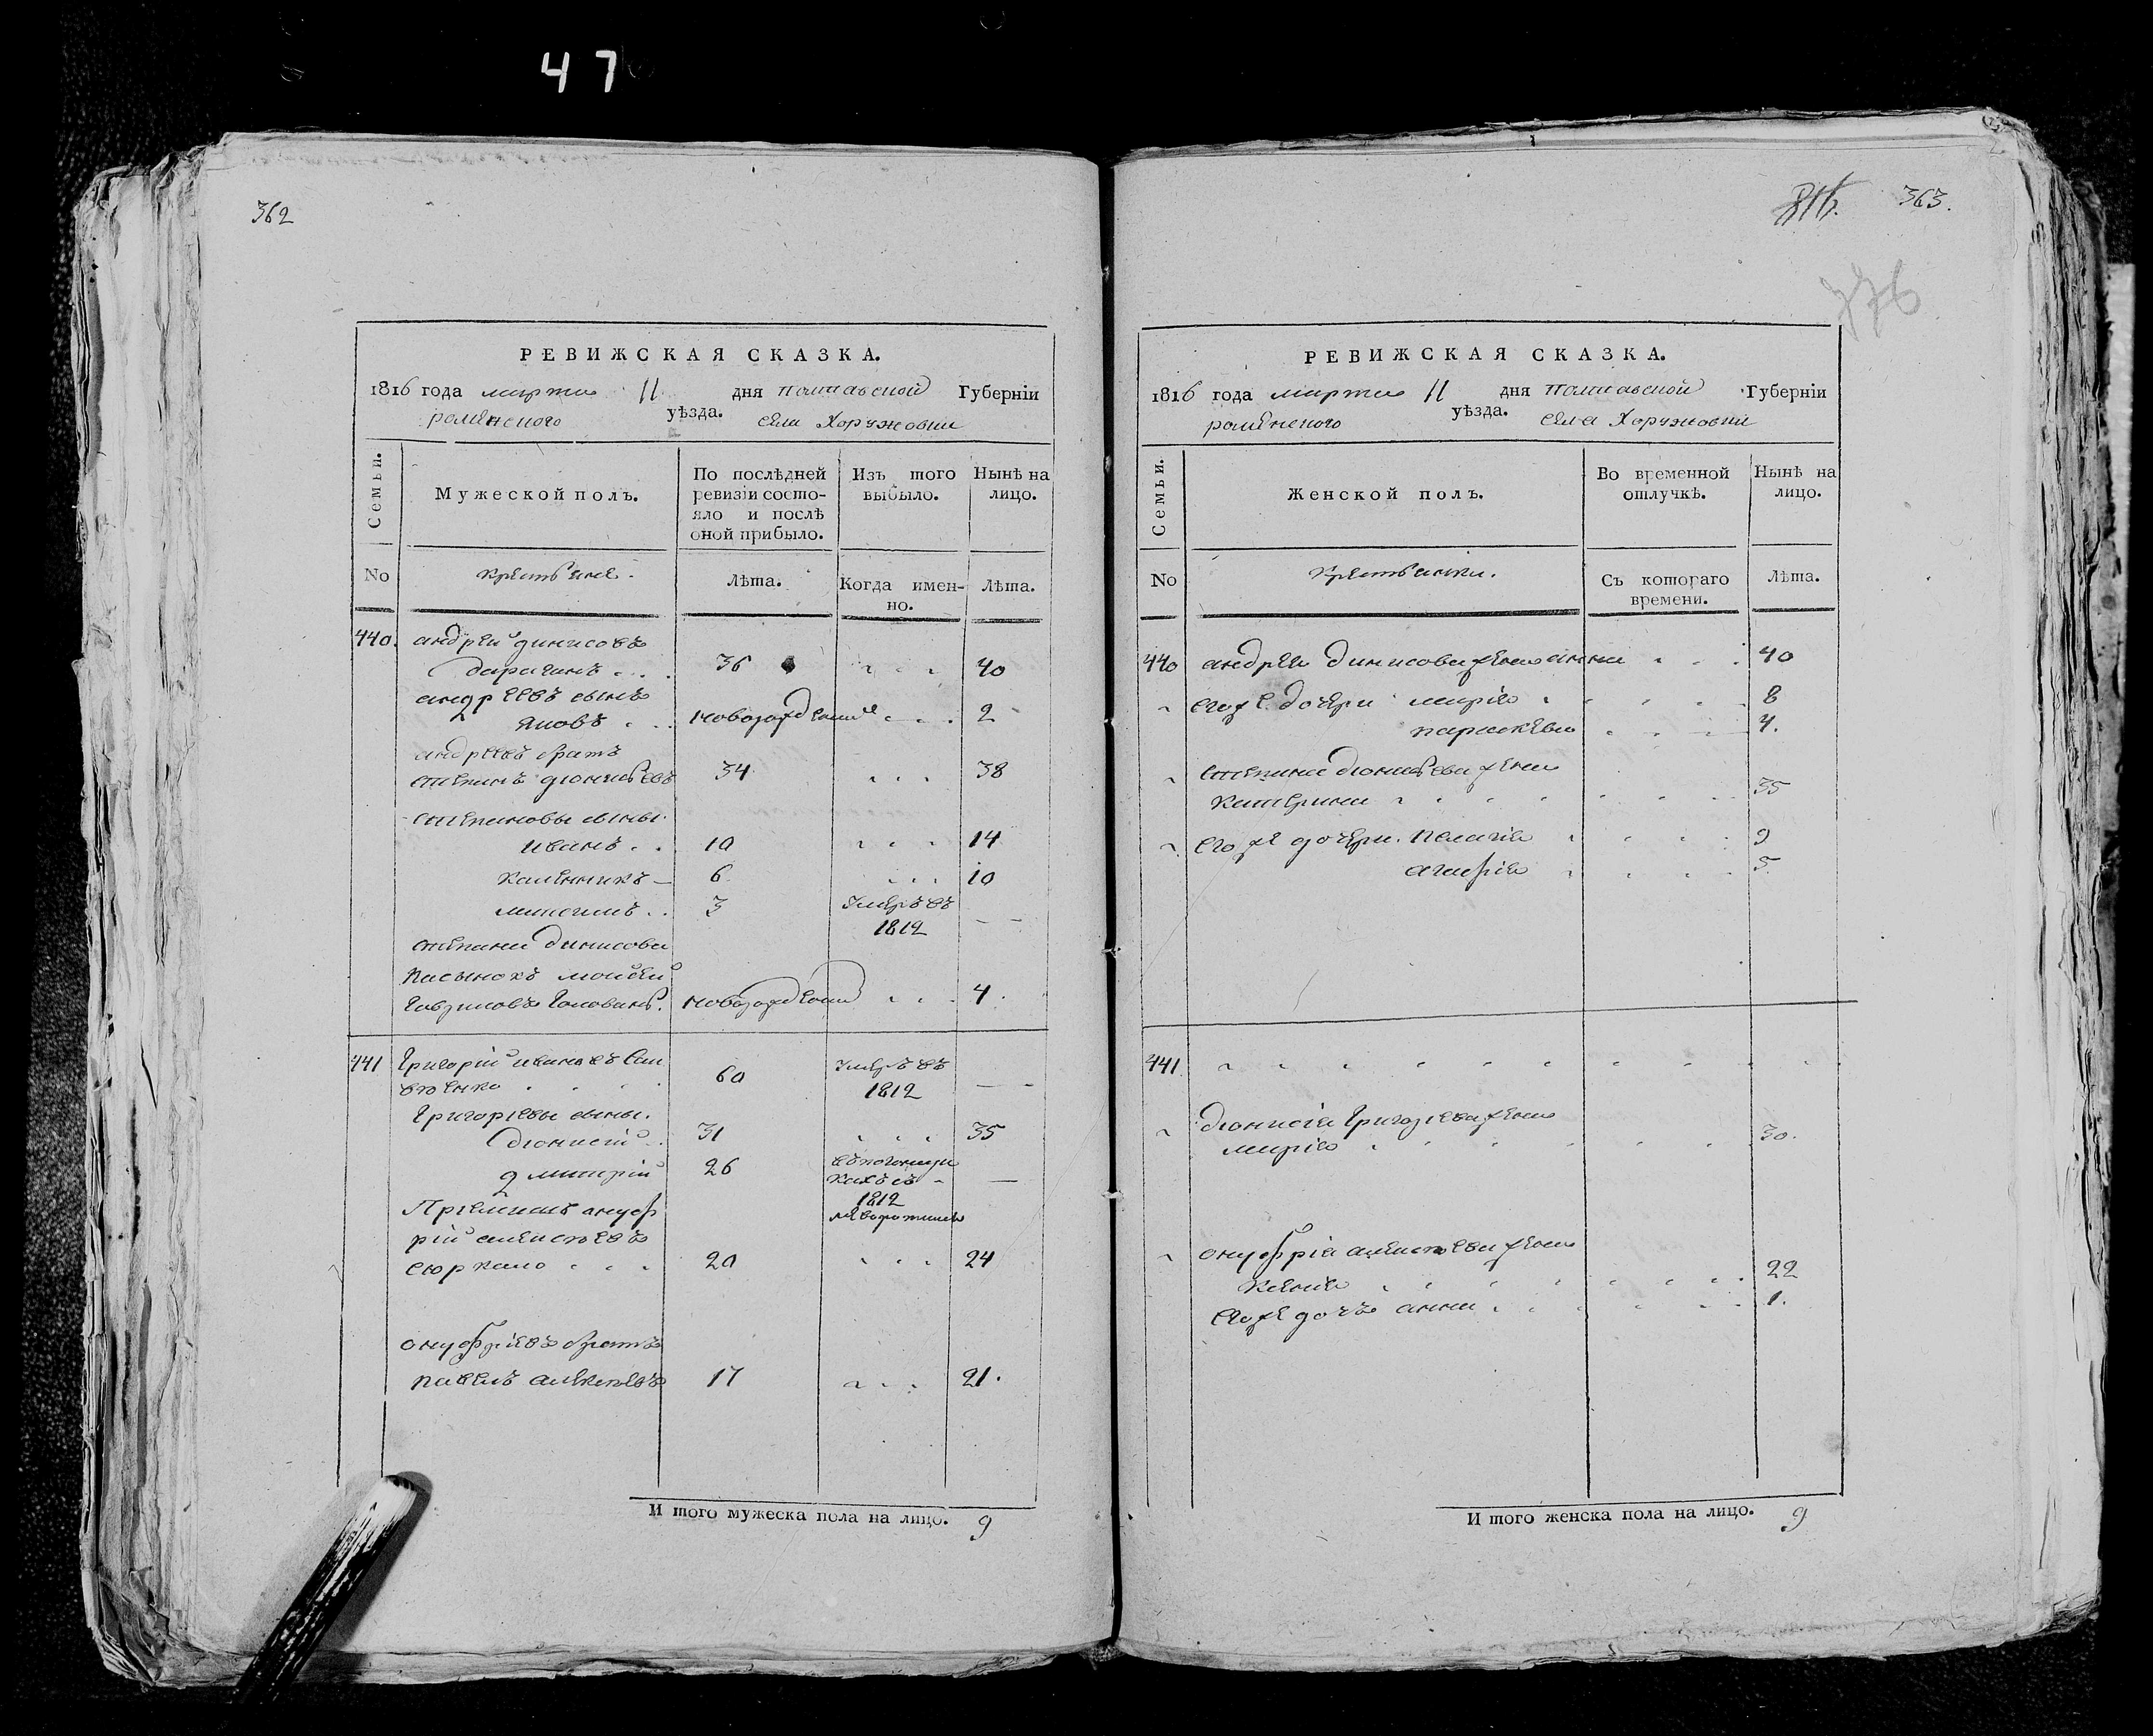 47
362
РЕВИЖСКАЯ СКАЗКА.
1816 года марта 11 дня полтавской Губерніи
роменского уѣзда. села Хоружовки
Семьи.
Мужеской полъ.
По послѣдней ревизіи состояло и послѣ оной прибыло.
Изъ того выбыло.
Нынѣ на лицо.
No
крестьяне.
Лѣта.
Когда именно.
Лѣта.
440. андрей динисовъ
дараганъ . . . 36 40
андреевъ сынъ
яковъ . . . новорожденный 2
андреевъ братъ
степанъ дионисьевъ 34 38
степановы сыны
иванъ . . 10 14
каленникъ 6 10
3 умеръ въ
1812
степана динисова
пасынокъ мойсей
новорожденный 4.
441 Григорій ивановъ
60 умеръ въ
1812
Григорьевы сыны.
дионисій 31 35
дмитрій 26
1812
рій алексеевъ
20 24
онуфріевъ братъ
павелъ алексеевъ 17 21.
И того мужеска пола на лицо. 9
816. 363.
776
РЕВИЖСКАЯ СКАЗКА.
1816 года марта 11 дня полтавской Губерніи
роменского уѣзда. села Хоружовки
Семьи.
Женской полъ.
Во временной отлучкѣ.
Нынѣ на лицо.
No
Крестьянки.
Съ котораго времени.
Лѣта.
440 андрея динисова жена анна 40
его же дочери марія 8
параскева 4.
степана дионисьева жена
катерина 35
его же дочери. пелагія 9
агафія 5
441
дионисія Григорьева жена
марія 30.
онуфрія алексеева жена
ксенія 22
его же дочь анна 1.
И того женска пола на лицо. 9